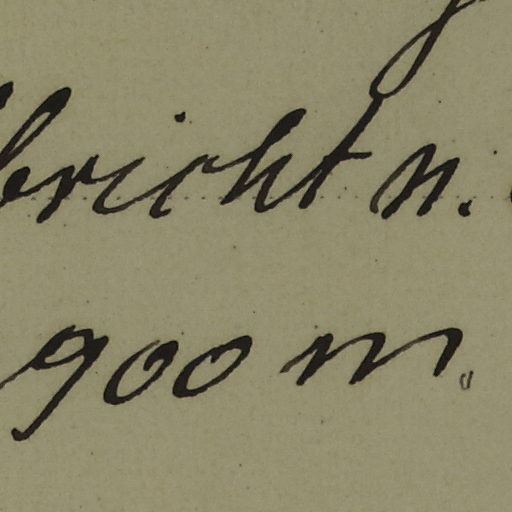 bricht n.
900 m